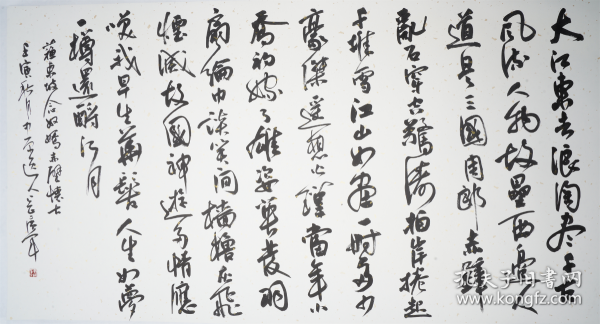 大江東去浪淘尽千古
风流人物故壘西邊人
道是三國周郎赤壁
亂石穿空驚濤拍岸捲起
千堆雪江山如畫一時多少
豪傑遥想公瑾當年小
喬初嫁了雄姿英發羽
扇綸巾談笑間檣櫓灰飛
煙滅故國神遊多情應
咲我早生華髮人生如夢
一樽還酹江月
蘇東坡念奴嬌赤壁懷古
壬寅
孔夫子旧书网
www.kongfz.com